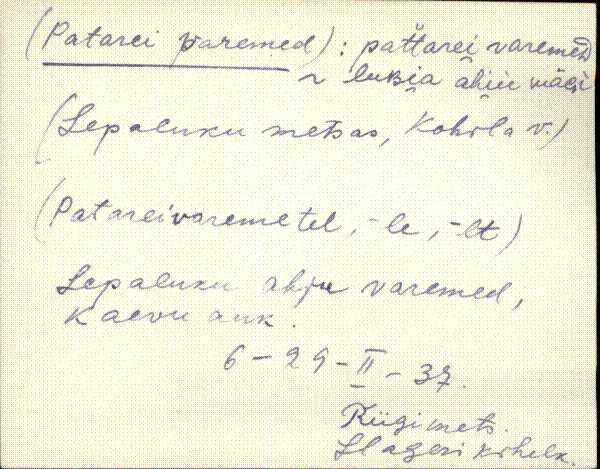 (Patarei varemed): pat̆tarei varemed
~ lubia ahju mägi
(Lepaluku metsas, Kohila v.)
(Patareivaremetel, -le, -lt)
Lepaluku ahju varemed,
Kaevu auk.
6-29-II-37.
Riigimets.
Hageri kihelk.